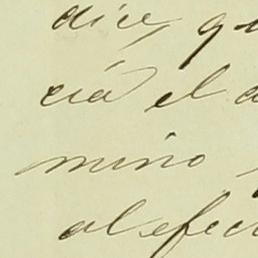 dice, qu
cia el a
mino
al efec